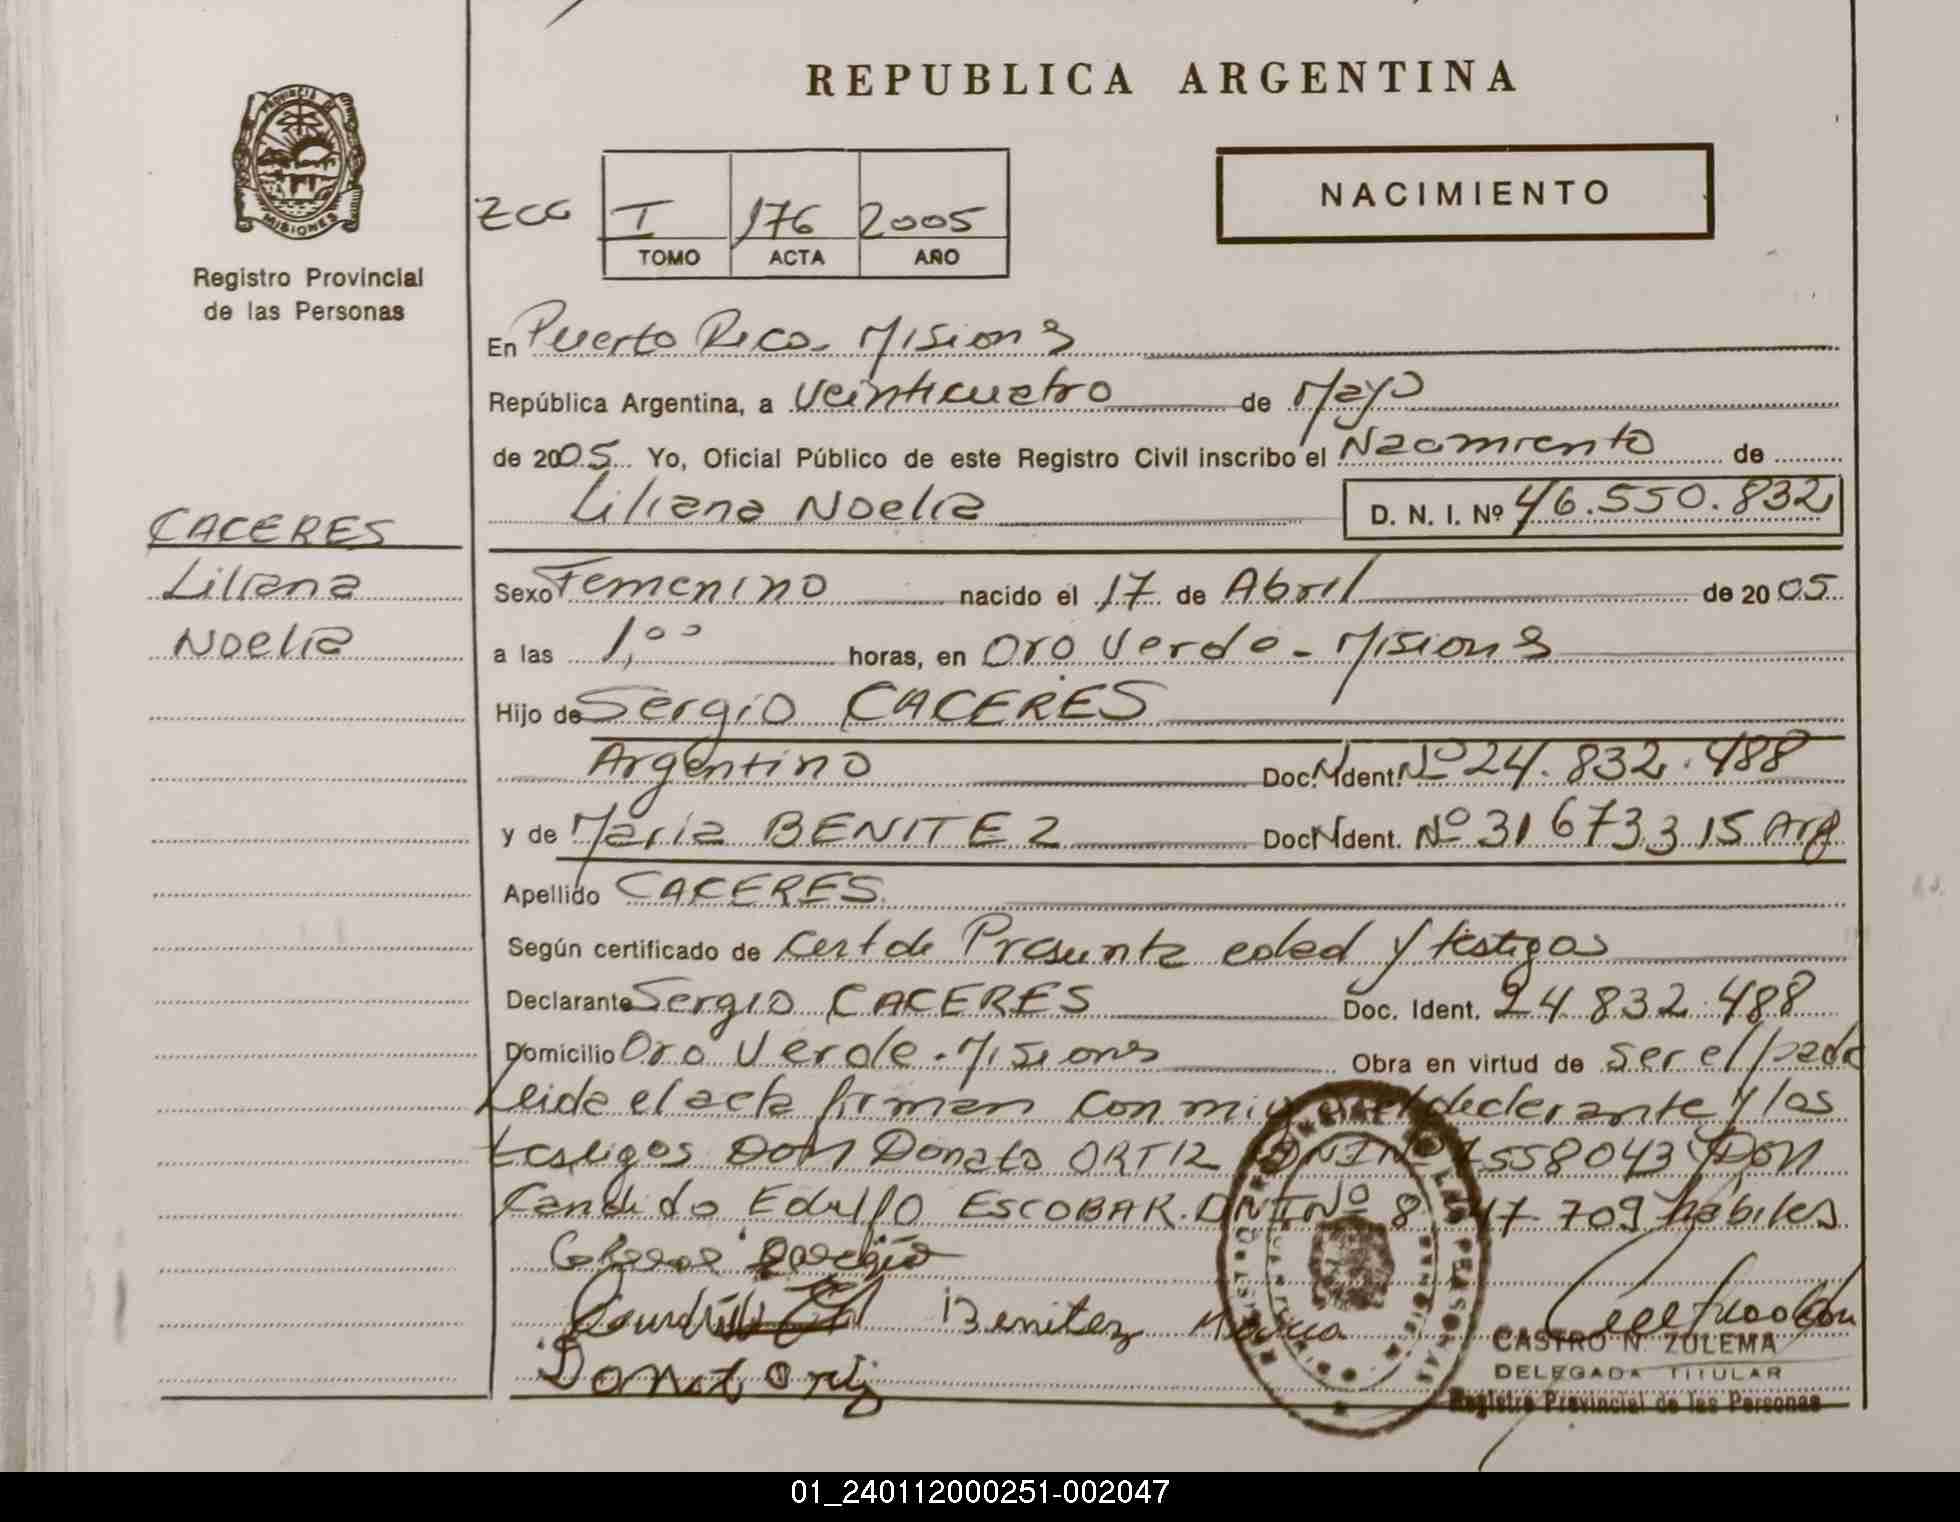 REPUBLICA ARGENTINA
PROVINCIA DE
MISIONES
Registro Provincial
de las Personas
NACIMIENTO
ZCG I 176 2005
TOMO ACTA AÑO
En Puerto Rico - Misiones
República Argentina, a veinticuatro de Mayo
de 2005 Yo, Oficial Público de este Registro Civil inscribo el Nacimiento de
Liliana Noelia D. N. I. Nº 46.550.832
CACERES
Liliana
Noelia
Sexo Femenino nacido el 17 de Abril de 2005
a las 1,00 horas, en Oro Verde - Misiones
Hijo de Sergio CACERES
Argentino Doc. Ident. Nº 24.832.488
y de Maria BENITEZ Doc. Ident. Nº 31673315 Arg
Apellido CACERES
Según certificado de Cert de Presunta edad y testigos
Declarante Sergio CACERES Doc. Ident. 24.832.488
Domicilio Oro Verde - Misiones Obra en virtud de ser el padre
Leida el acta firman con migo el declarante y los
testigos Don Donato ORTIZ DNI Nº 7558043 y Don
Candido Edulfo ESCOBAR. DNI Nº 8 709 habiles
Benitez Maria
Donato Ortiz
CASTRO N. ZULEMA
DELEGADA TITULAR
Registro Provincial de las Personas
01_240112000251-002047